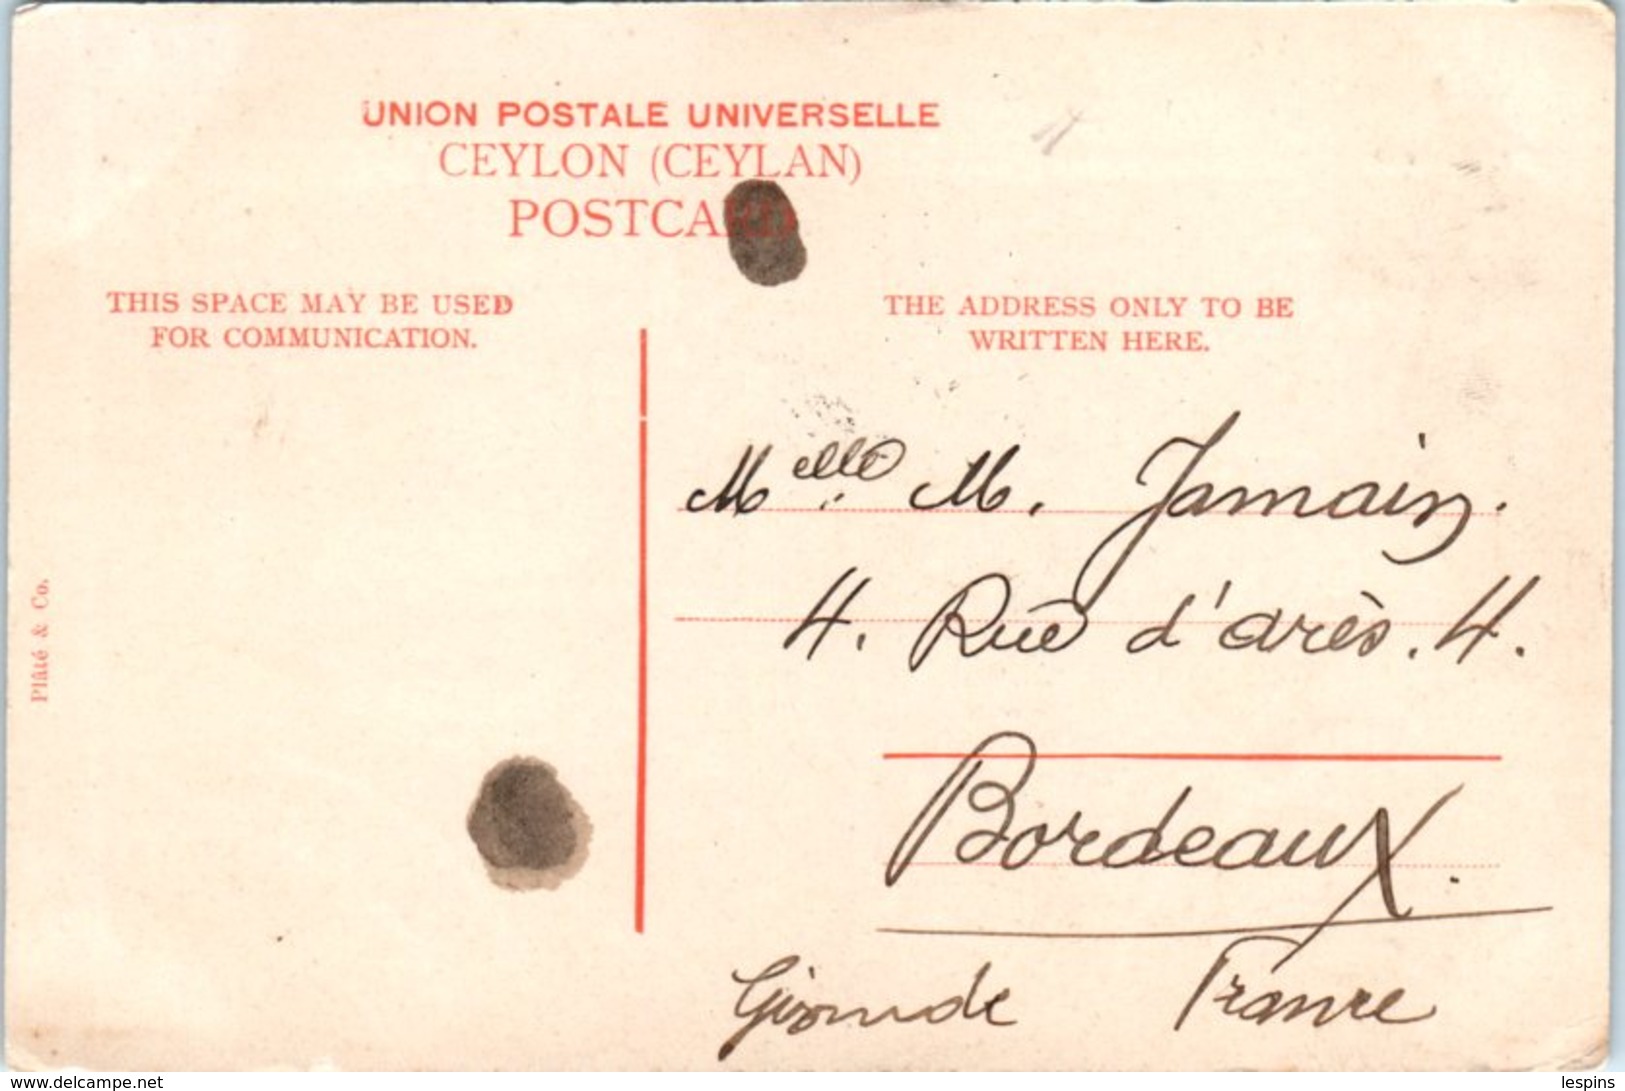 UNION POSTALE UNIVERSELLE
CEYLON (CEYLAN)
POSTCARD
THIS SPACE MAY BE USED
FOR COMMUNICATION.
THE ADDRESS ONLY TO BE
WRITTEN HERE.
Plâté & Co.
Melle M. Jamain.
4. Rue d'arès. 4.
Bordeaux.
Gironde France
www.delcampe.net
lespins